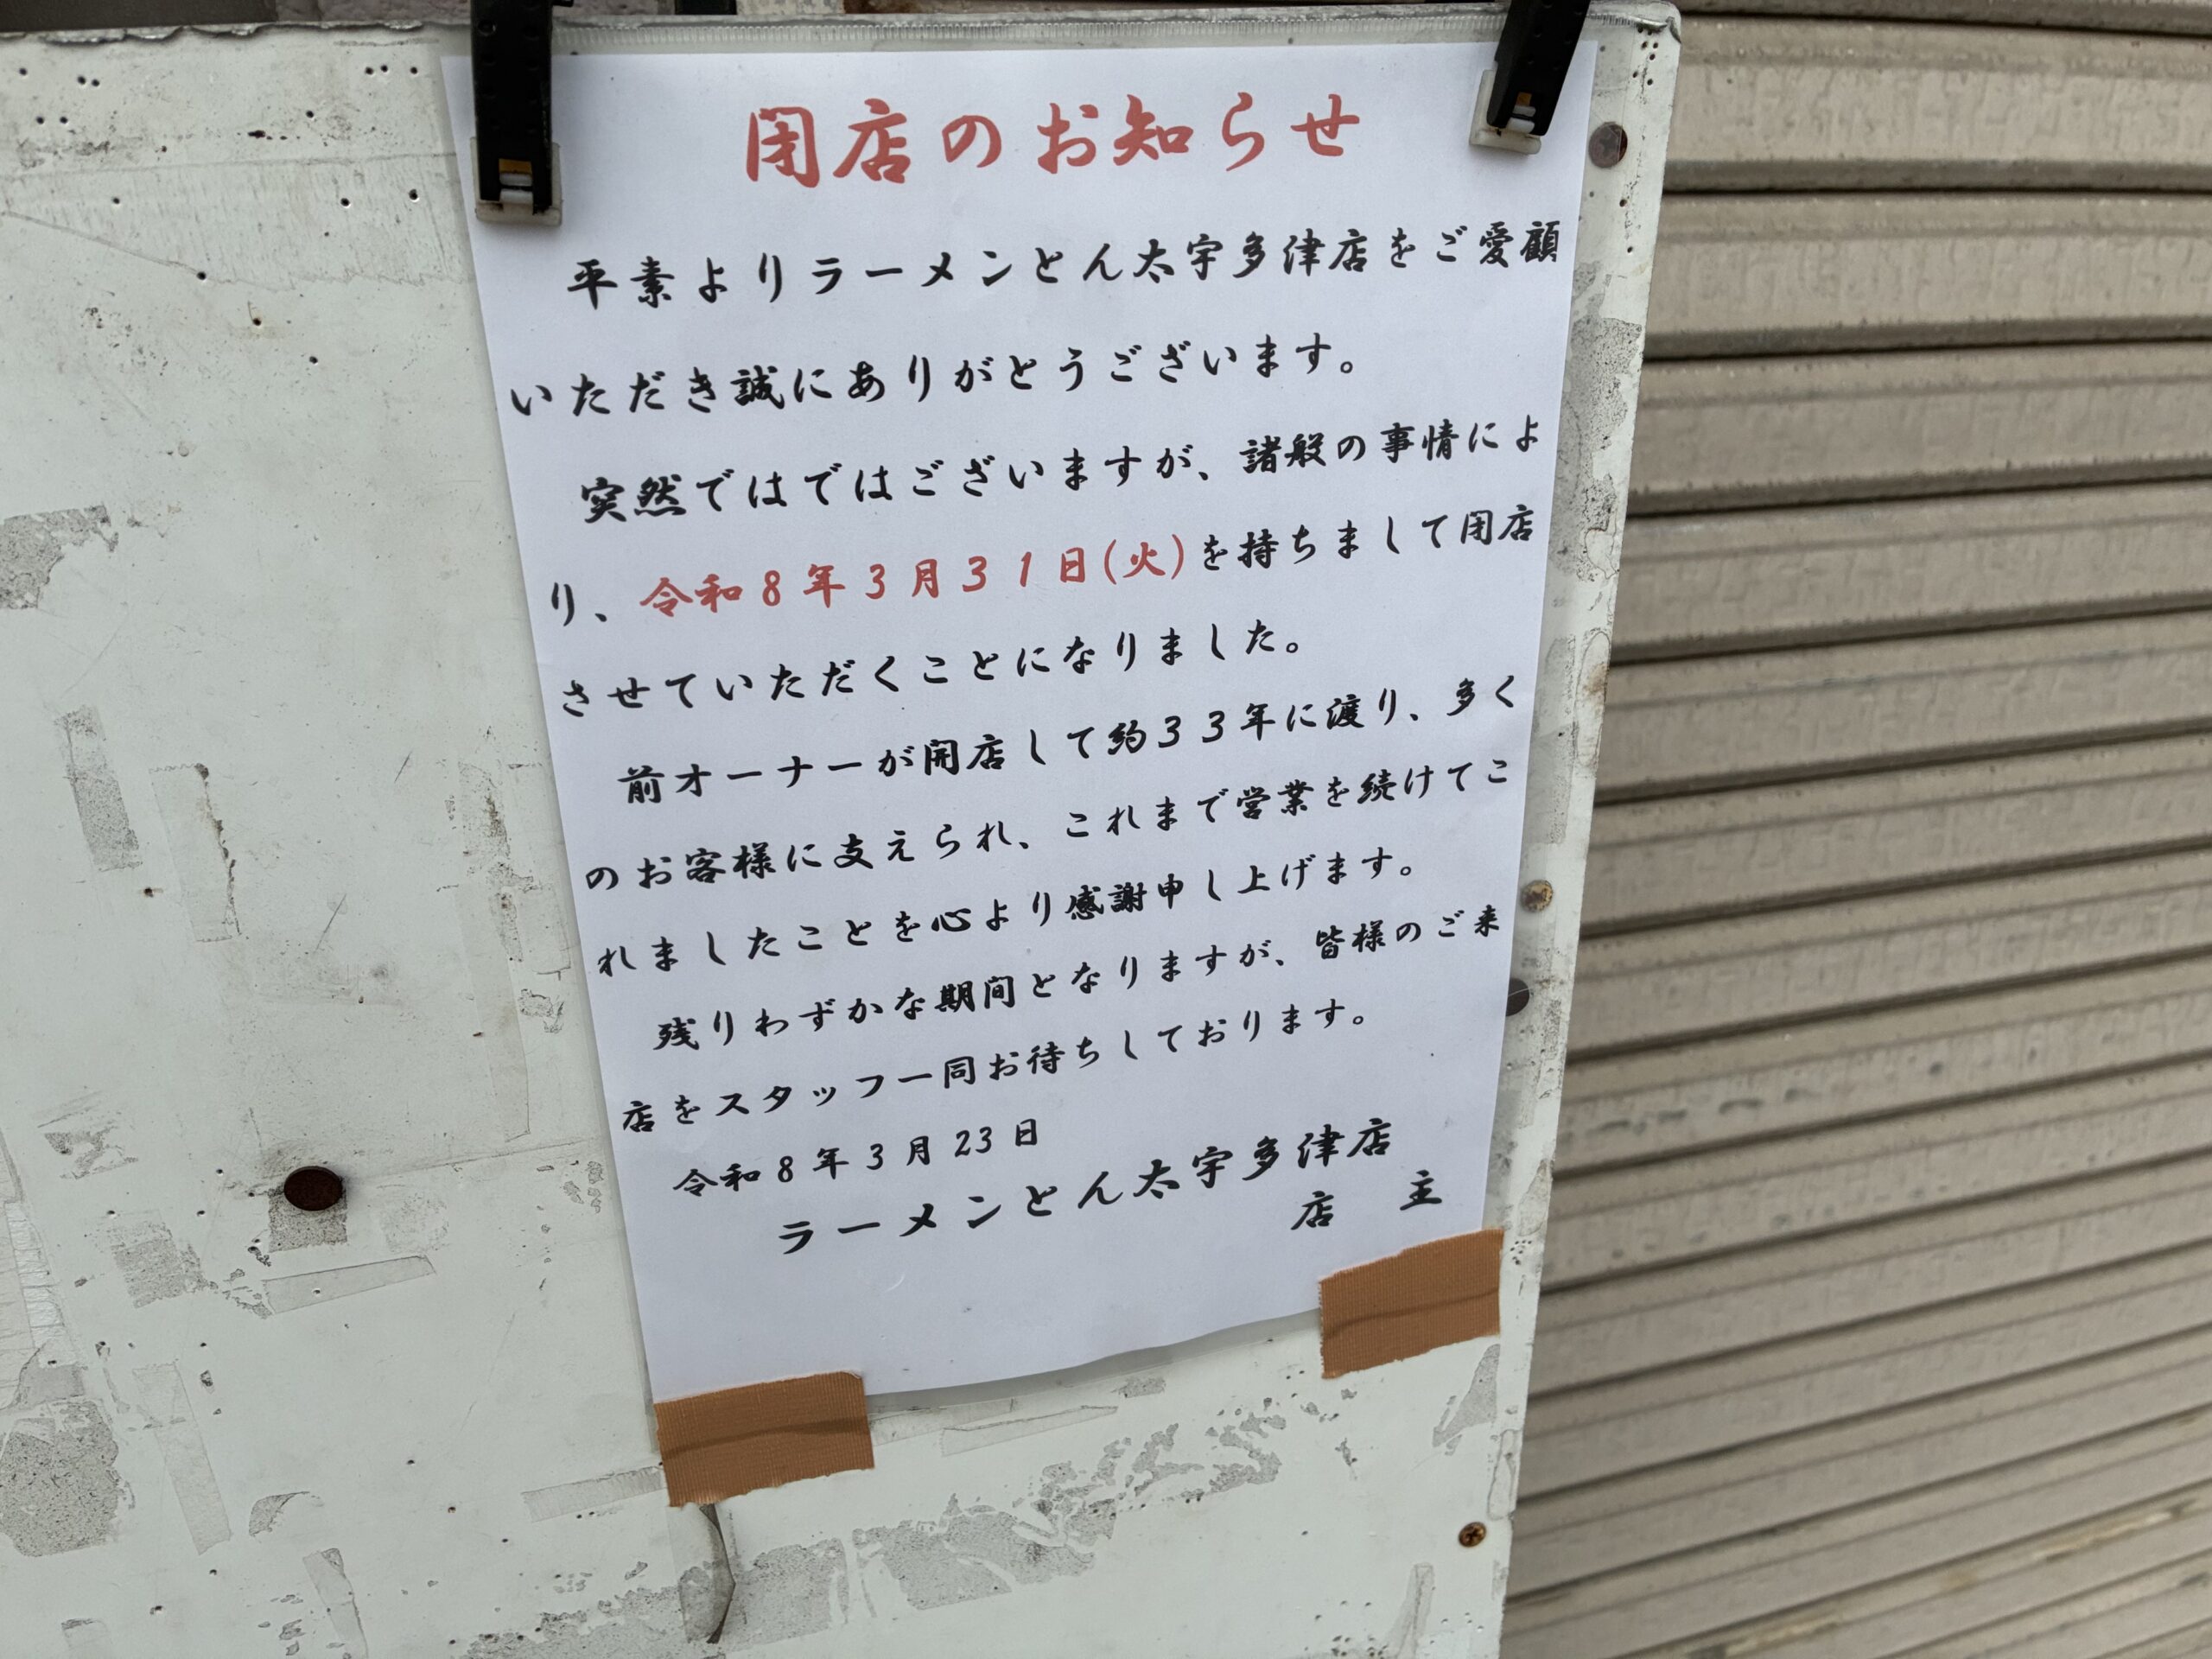 閉店のお知らせ
平素よりラーメンとん太宇多津店をご愛顧
いただき誠にありがとうございます。
突然ではではございますが、諸般の事情によ
り、令和8年3月31日(火)を持ちまして閉店
させていただくことになりました。
前オーナーが開店して約33年に渡り、多く
のお客様に支えられ、これまで営業を続けてこ
れましたことを心より感謝申し上げます。
残りわずかな期間となりますが、皆様のご来
店をスタッフ一同お待ちしております。
令和8年3月23日
ラーメンとん太宇多津店
店 主